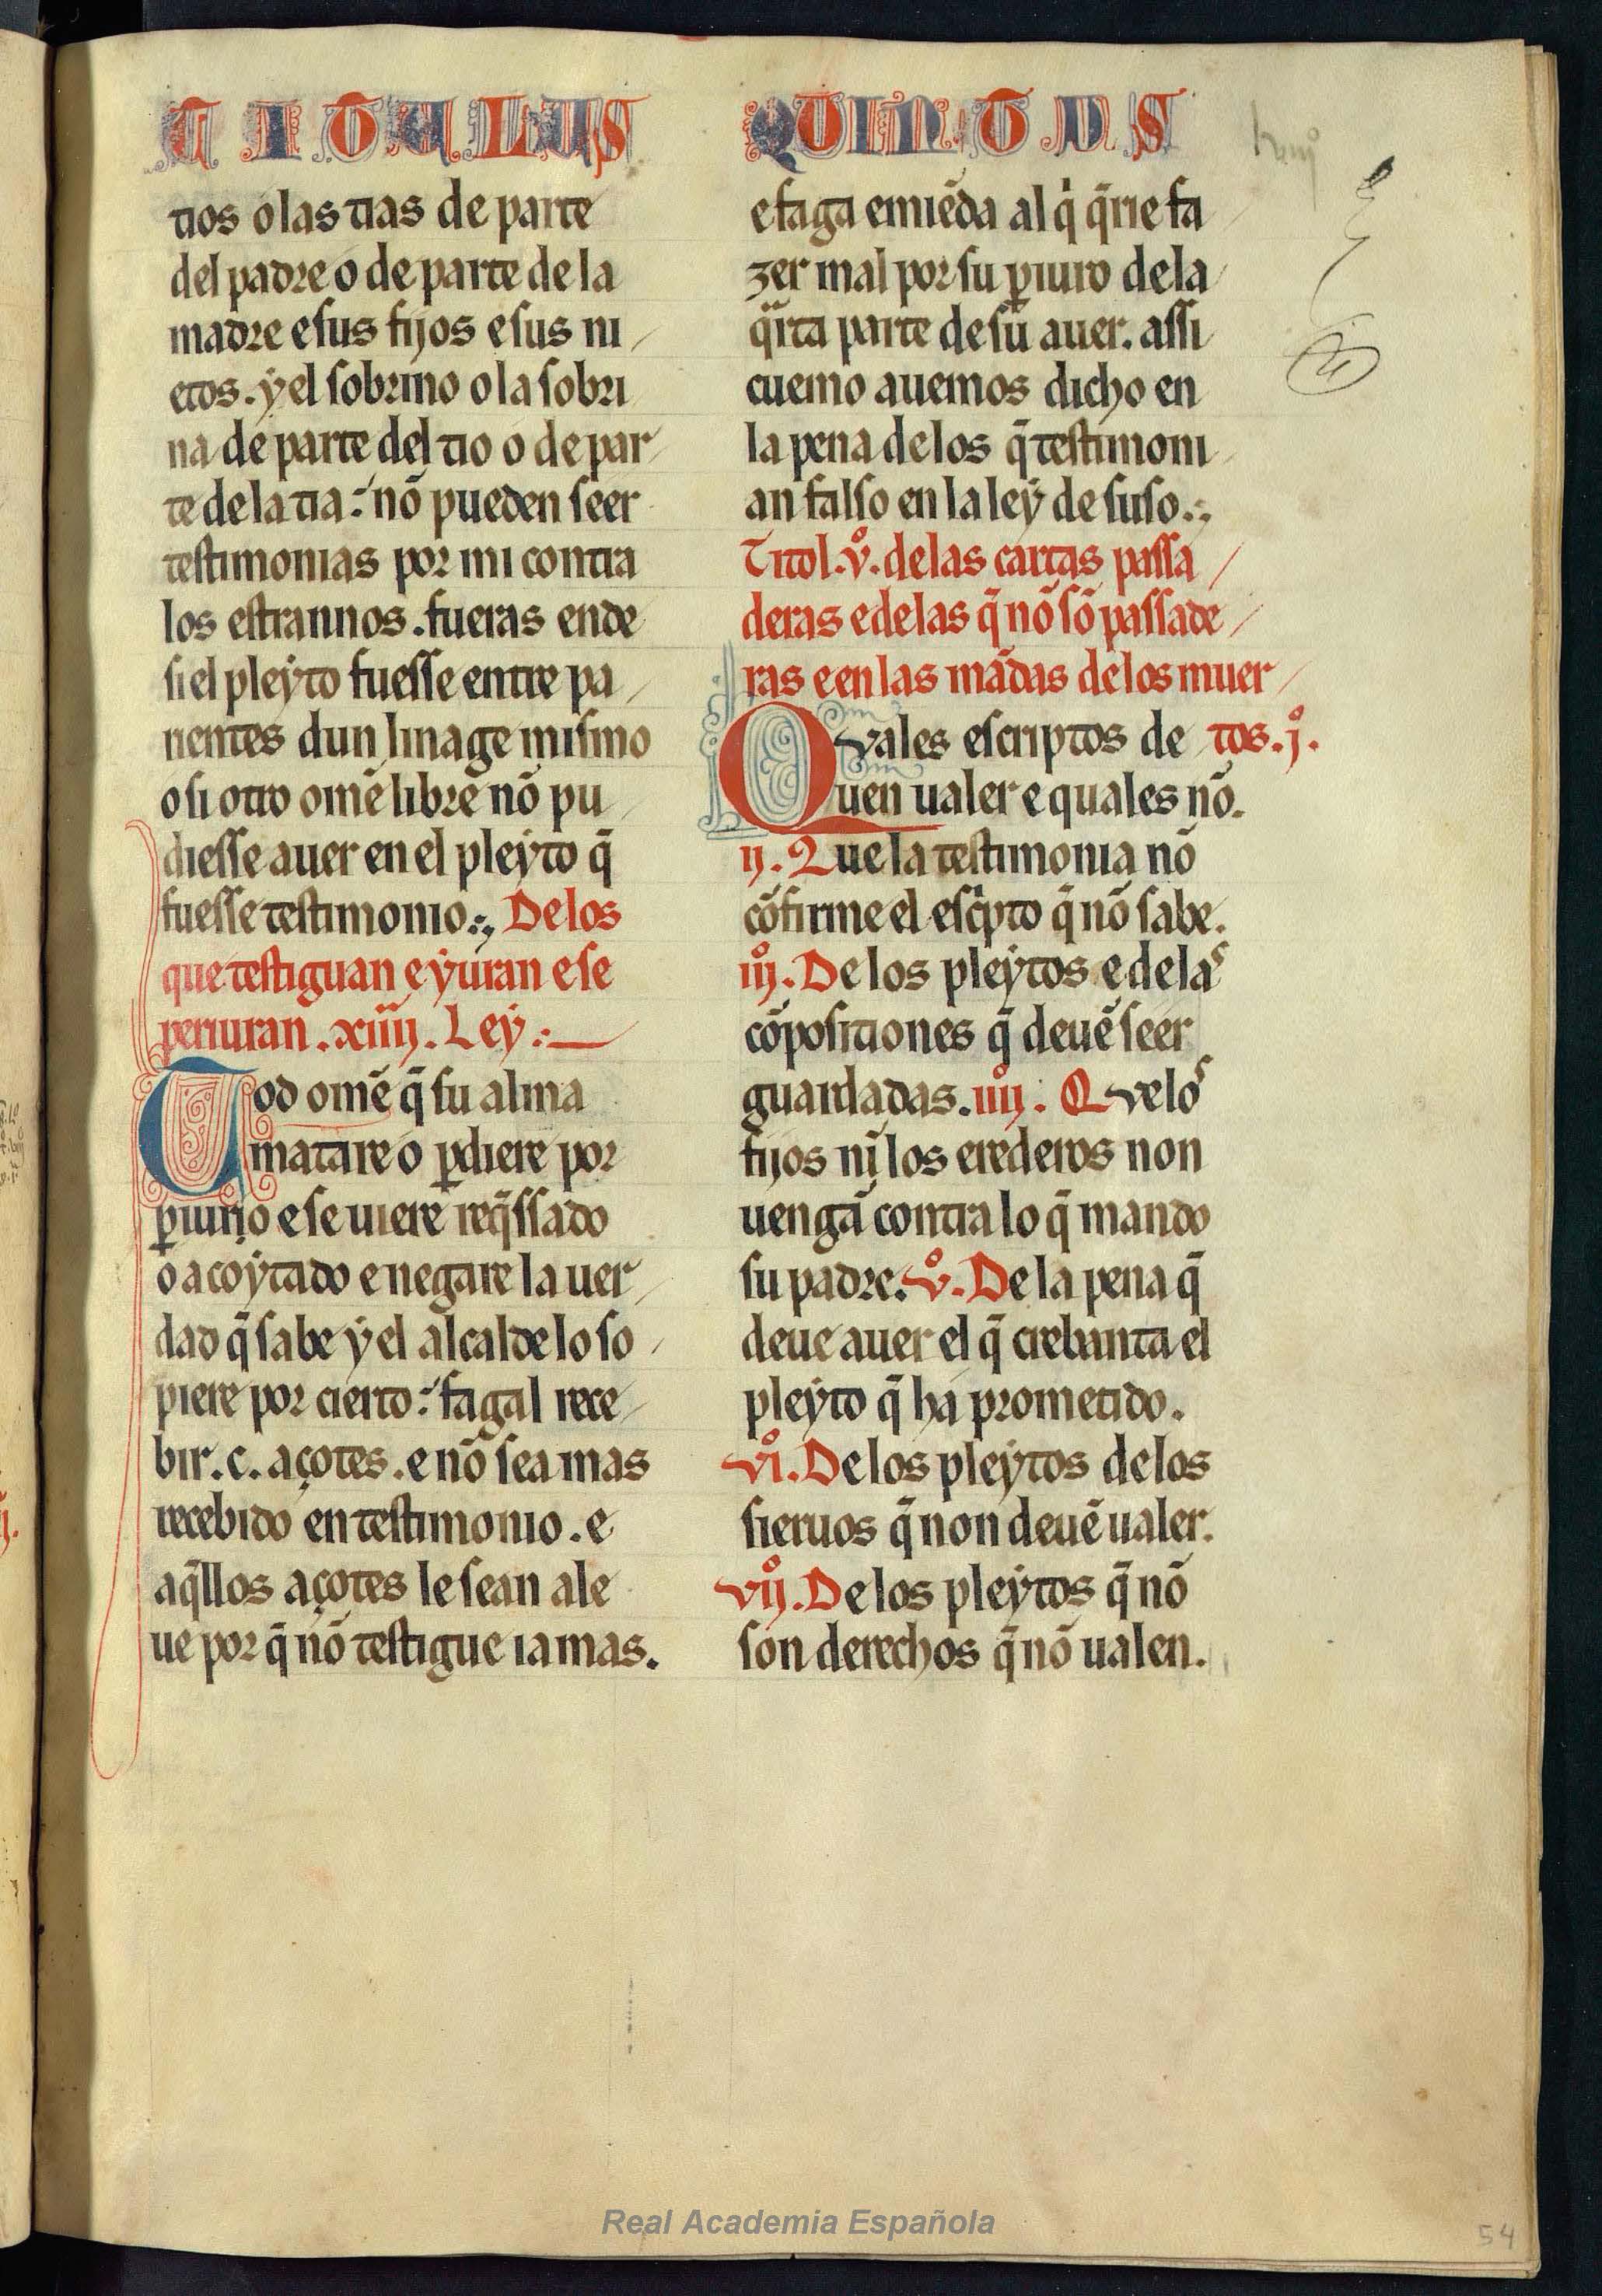 TITULUS QUINTUS
tios o las tias de parte
del padre o de parte de la
madre e sus fijos e sus ni
etos. ẏ el sobrino o la sobri
na de parte del tio o de par
te de la tia: nõ pueden seer
testimonias por mi contra
los estrannos. fueras ende
si el pleẏto fuesse entre pa
rientes dun linage mismo
o si otro omẽ librẽ nõ pu
diesse auer en el pleẏto q̃
fuesse testimonio. De los
que testiguan e ẏuran e se
periuran. xiiij. Leẏ.
Tod omẽ q̃ su alma
matare o ꝑdiere por
ꝑiurio e se uiere req̃ssado
o acoẏtado e negare la uer
dad q̃ sabe ẏ el alcalde lo so
piere por cierto: fagal rece
bir. c. açotes. e nõ sea mas
recebido en testimonio. e
aq̃llos açotes le sean ale
ue por q̃ nõ testigue iamas.
e faga emiẽda al q̇ q̃rie fa
zer mal por su ꝑiuro de la
q̃rta parte de su auer. assi
cuemo auemos dicho en
la pena de los q̃ testimoni
an falso en la leẏ de suso.
Titol. vͦ. de las cartas passa
deras e de las q̃ nõ sõ passade
ras e en las mãdas de los muer
Quales escriptos de tos. jͦ.
uen ualer e quales nõ.
ij. Que la testimonia nõ
cõfirme el esc̍pto q̃ nõ sabe.
iijͦ. De los pleẏtos e de las
cõpositiones q̃ deuẽ seer
guardadas. iiijͦ. Q ve los
fijos ni los erederos non
uengã contra lo q̃ mando
su padre. vͦ. De la pena q̃
deue auer el q̃ crebanta el
pleẏto q̃ ha prometido.
viͦ. De los pleẏtos de los
sieruos q̃ non deuẽ ualer.
vijͦ. De los pleẏtos q̃ nõ
son derechos q̃ nõ ualen.
Real Academia Española
54